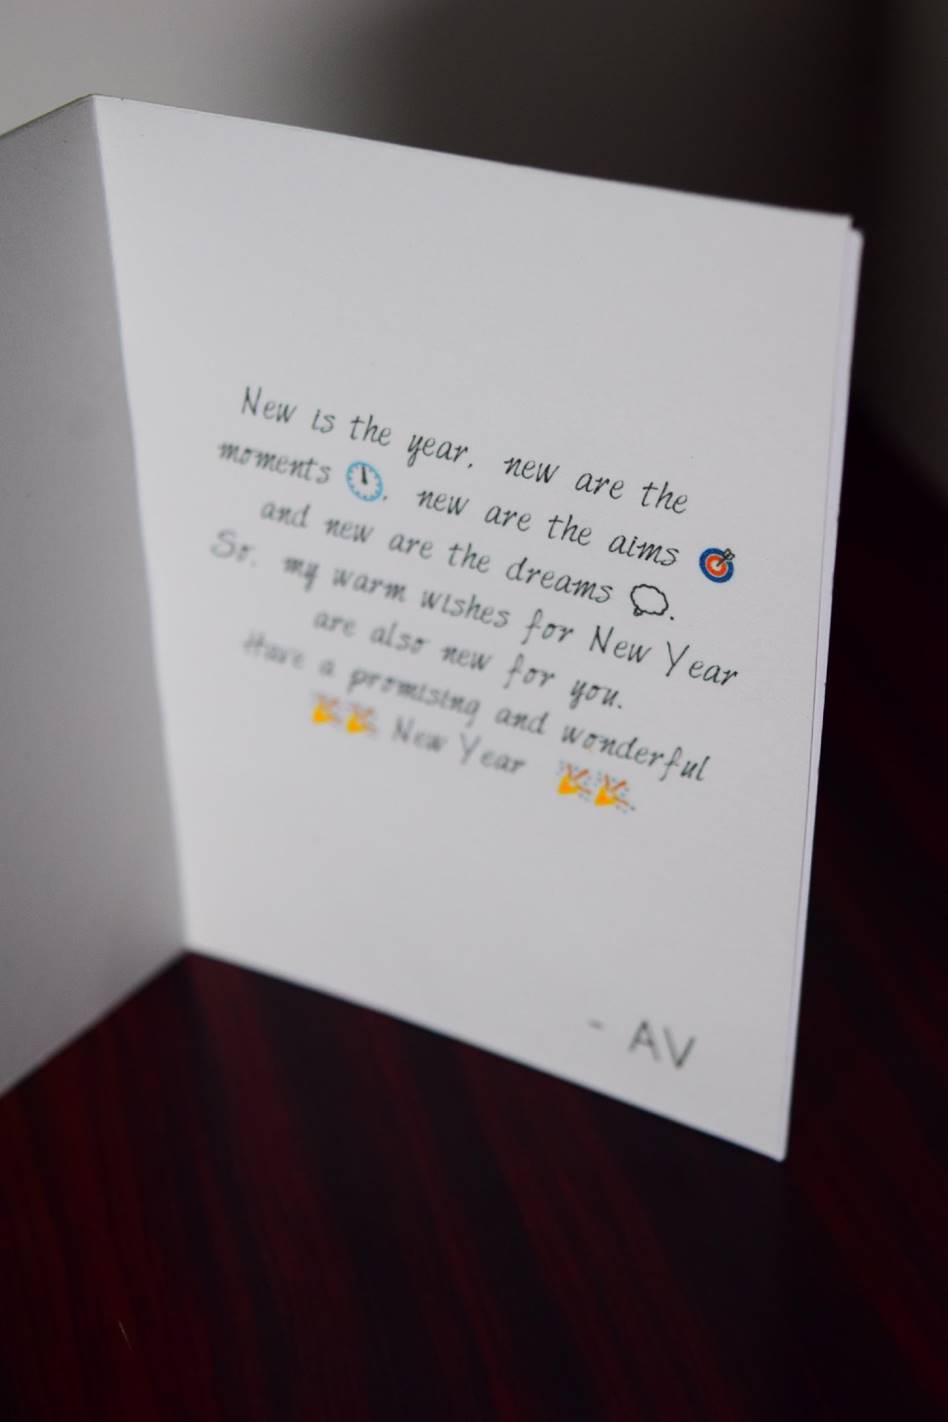 New is the year, new are the
moments 🕛, new are the aims 🎯
and new are the dreams 💭.
So, my warm wishes for New Year
are also new for you.
Have a promising and wonderful
🎉🎉 New Year 🎉🎉
- AV